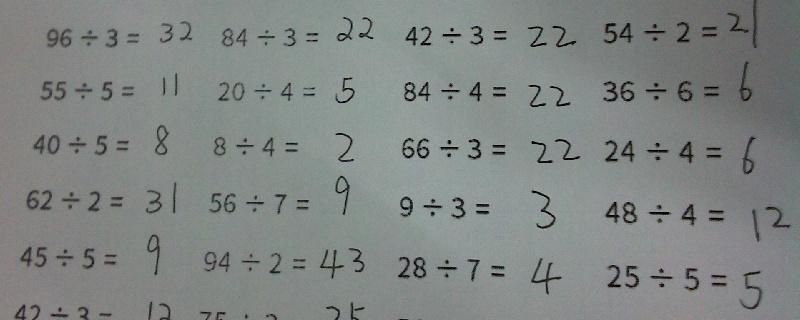 96 ÷ 3 = 32 84 ÷ 3 = 22 42 ÷ 3 = 22 54 ÷ 2 = 21
55 ÷ 5 = 11 20 ÷ 4 = 5 84 ÷ 4 = 22 36 ÷ 6 = 6
40 ÷ 5 = 8 8 ÷ 4 = 2 66 ÷ 3 = 22 24 ÷ 4 = 6
62 ÷ 2 = 31 56 ÷ 7 = 9 9 ÷ 3 = 3 48 ÷ 4 = 12
45 ÷ 5 = 9 94 ÷ 2 = 43 28 ÷ 7 = 4 25 ÷ 5 = 5
42 ÷ 3 =